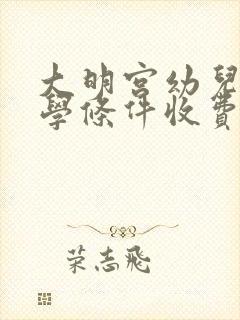 大明宮幼兒
學條件收費
荣志飛